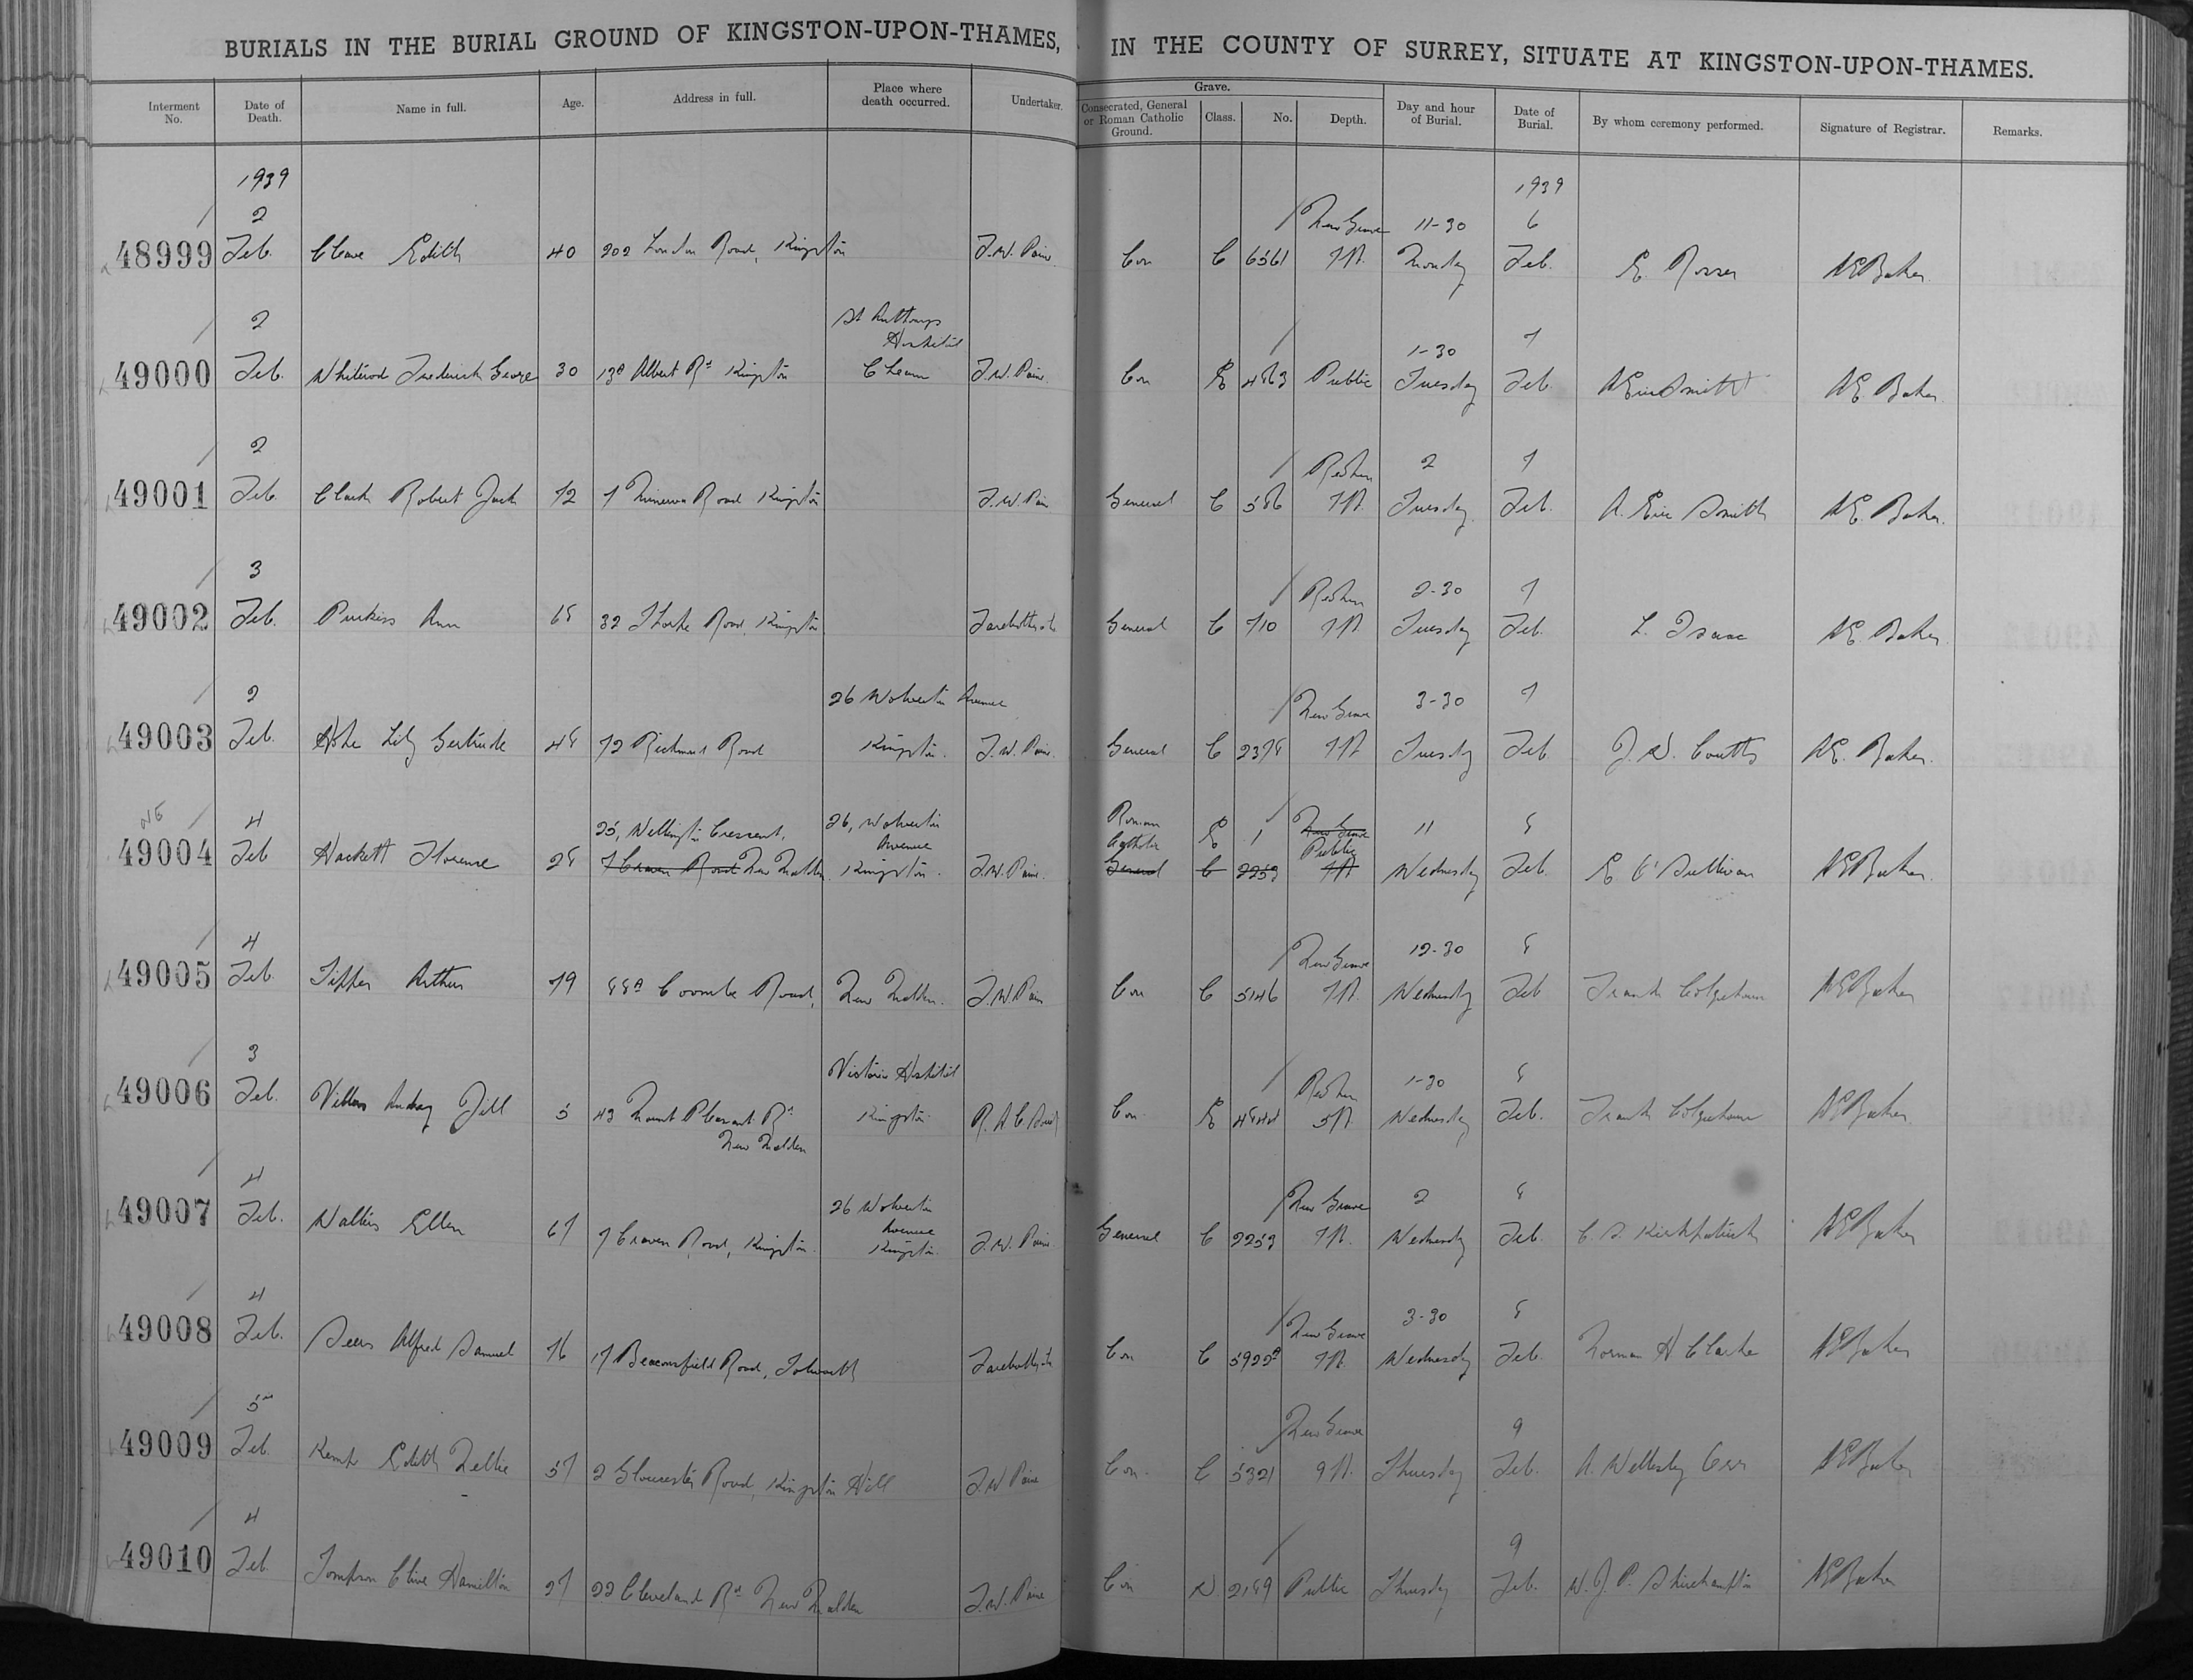 BURIALS IN THE BURIAL GROUND OF KINGSTON-UPON-THAMES, IN THE COUNTY OF SURREY, SITUATE AT KINGSTON-UPON-THAMES.
Interment No. Date of Death. Name in full. Age. Address in full. Place where death occurred. Undertaker. Grave. Consecrated, General or Roman Catholic Ground. Class. No. Depth. Day and hour of Burial. Date of Burial. By whom ceremony performed. Signature of Registrar. Remarks.
1939 1939
2 New Grave 11-30 6
48999 Feb. Edith 40 202 London Road, Kingston F.W. Paine Con C 6561 7ft. Monday Feb. E. Rosser AE Baker
2 St Anthonys Hospital 1-30 7
49000 Feb. Whiterod Frederick George 30 13a Albert Rd Kingston Cheam F.W. Paine Con E Public Tuesday Feb. A Eric Smith AE. Baker
2 2 7
49001 Feb. Clark Robert Jack 72 7 Minerva Road Kingston F.W. Paine General C 586 7ft. Tuesday Feb. A. Eric Smith AE. Baker
3 2-30 7
49002 Feb. Purkiss Ann 68 32 Thorpe Road, Kingston Farebrother General C 710 7ft. Tuesday Feb. L. Isaac AE. Baker
2 26 Wolverton Avenue New Grave 3-30 7
49003 Feb. Ashe Lily Gertrude 48 72 Richmond Road Kingston. F.W. Paine. General C 2378 7ft Tuesday Feb J. D. Coutts AE. Baker
4 25, Wellington Crescent, 26, Wolverton Avenue Roman Catholic E 1 New Grave Public 11 8
49004 Feb Hackett Florence 28 7 Craven Road New Malden Kingston. F.W. Paine. General C 2253 7ft Wednesday Feb. E O'Sullivan AE Baker
4 New Grave 12-30 8
49005 Feb. Tipper Arthur 79 88a Coombe Road, New Malden. F.W. Paine Con C 5146 7ft. Wednesday Feb Frank Colquhoun AE Baker
3 Victoria Hospital 1-30 8
49006 Feb. Audrey Jill 5 43 Mount Pleasant Rd New Malden Kingston Con E 4844 5ft. Wednesday Feb. Frank Colquhoun AE Baker
4 26 Wolverton Avenue New Grave 2 8
49007 Feb. Wallis Ellen 67 7 Craven Road, Kingston. Kingston. F.W. Paine General C 2253 7ft. Wednesday Feb. C. S. Kirkpatrick AE Baker
4 New Grave 3-30 8
49008 Feb. Sears Alfred Samuel 76 17 Beaconsfield Road, Tolworth Farebrother Con C 5922a 7ft. Wednesday Feb. Norman H Clarke AE Baker
5 New Grave 9
49009 Feb. Kemp Edith Nellie 57 2 Gloucester Road, Kingston Hill F.W. Paine Con. C 5321 9ft. Thursday Feb. A. Wellesley Orr AE Baker
4 9
49010 Feb. Tompson Clive Hamilton 27 22 Cleveland Rd New Malden F.W. Paine Con D 2189 Public Thursday Feb. W. J. P. AE Baker